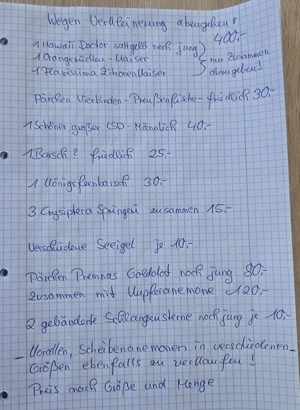 Wegen Verkleinerung abzugeben!
1 Hawaii Doctor sattgelb noch jung
400,-
1 Orangeröllen-Kaiser
1 Flavissima Zitronenkaiser
nur zusammen abzugeben!
Pärchen Vierbinden-Preußenfische-friedlich 30,-
1 Schöner großer LSD-Männlich 40,-
1 Barsch? friedlich 25,-
1 Königsfeenbarsch 30,-
3 Crysiptera Springeri zusammen 15,-
Verschiedene Seeigel je 10,-
Pärchen Premnas Goldolot noch jung 80,-
zusammen mit Kupferanemone €120,-
2 gebänderte Schlangensterne noch jung je 10,-
- Korallen, Scheibenanemonen in verschiedenen
Größen ebenfalls zu verkaufen!
Preis nach Größe und Menge